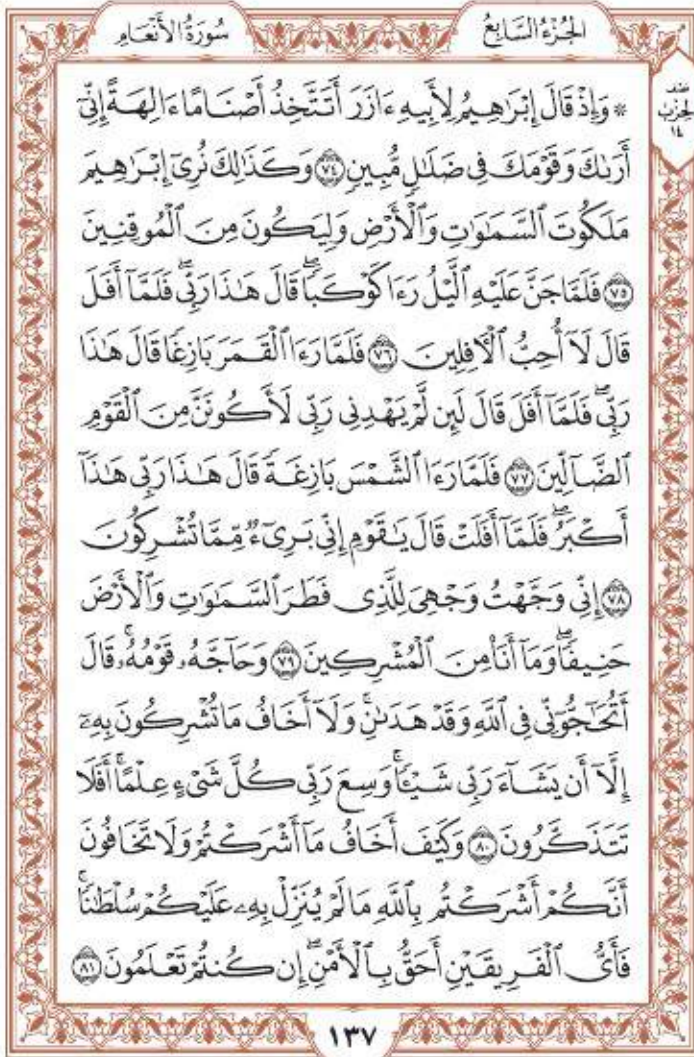 الجُزْءُ السَّابِعُ
سُورَةُ الأَنْعَامِ
نصف
الحزب
١٤
* وَإِذْ قَالَ إِبْرَٰهِيمُ لِأَبِيهِ ءَازَرَ أَتَتَّخِذُ أَصْنَامًا ءَالِهَةً إِنِّيٓ
أَرَىٰكَ وَقَوْمَكَ فِي ضَلَٰلٖ مُّبِينٖ ٧٤ وَكَذَٰلِكَ نُرِيٓ إِبْرَٰهِيمَ
مَلَكُوتَ ٱلسَّمَٰوَٰتِ وَٱلْأَرْضِ وَلِيَكُونَ مِنَ ٱلْمُوقِنِينَ
٧٥ فَلَمَّا جَنَّ عَلَيْهِ ٱلَّيْلُ رَءَا كَوْكَبٗاۖ قَالَ هَٰذَا رَبِّيۖ فَلَمَّآ أَفَلَ
قَالَ لَآ أُحِبُّ ٱلْأٓفِلِينَ ٧٦ فَلَمَّا رَءَا ٱلْقَمَرَ بَازِغٗا قَالَ هَٰذَا
رَبِّيۖ فَلَمَّآ أَفَلَ قَالَ لَئِن لَّمْ يَهْدِنِي رَبِّي لَأَكُونَنَّ مِنَ ٱلْقَوْمِ
ٱلضَّآلِّينَ ٧٧ فَلَمَّا رَءَا ٱلشَّمْسَ بَازِغَةٗ قَالَ هَٰذَا رَبِّي هَٰذَآ
أَكْبَرُۖ فَلَمَّآ أَفَلَتْ قَالَ يَٰقَوْمِ إِنِّي بَرِيٓءٞ مِّمَّا تُشْرِكُونَ
٧٨ إِنِّي وَجَّهْتُ وَجْهِيَ لِلَّذِي فَطَرَ ٱلسَّمَٰوَٰتِ وَٱلْأَرْضَ
حَنِيفٗاۖ وَمَآ أَنَا۠ مِنَ ٱلْمُشْرِكِينَ ٧٩ وَحَآجَّهُۥ قَوْمُهُۥۚ قَالَ
أَتُحَٰٓجُّوٓنِّي فِي ٱللَّهِ وَقَدْ هَدَىٰنِۚ وَلَآ أَخَافُ مَا تُشْرِكُونَ بِهِۦٓ
إِلَّآ أَن يَشَآءَ رَبِّي شَيْـٔٗاۚ وَسِعَ رَبِّي كُلَّ شَيْءٍ عِلْمًاۚ أَفَلَا
تَتَذَكَّرُونَ ٨٠ وَكَيْفَ أَخَافُ مَآ أَشْرَكْتُمْ وَلَا تَخَافُونَ
أَنَّكُمْ أَشْرَكْتُم بِٱللَّهِ مَا لَمْ يُنَزِّلْ بِهِۦ عَلَيْكُمْ سُلْطَٰنٗاۚ
فَأَيُّ ٱلْفَرِيقَيْنِ أَحَقُّ بِٱلْأَمْنِۖ إِن كُنتُمْ تَعْلَمُونَ ٨١
١٣٧